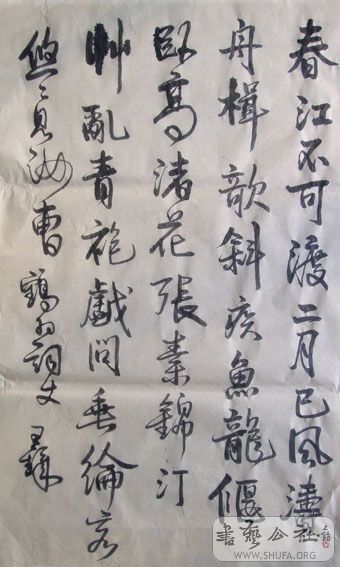 春江不可渡二月已風濤
舟楫欹斜疾魚龍偃
臥高渚花張素錦汀
艸亂青袍戲問垂綸客
悠〻見汝曹 詞丈 王鐸
書藝公社
WWW.SHUFA.ORG